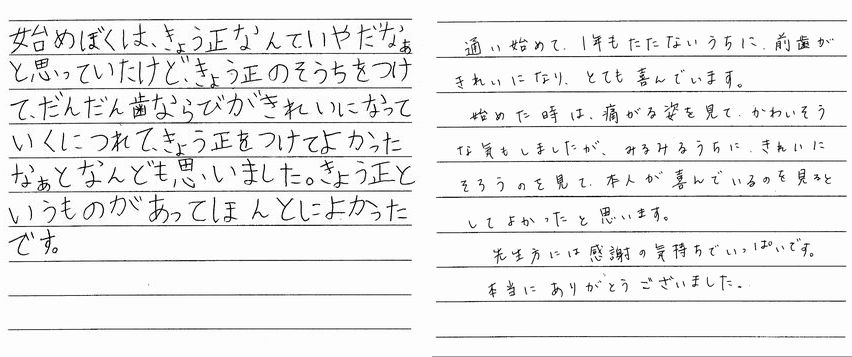 始めぼくは、きょう正なんていやだなぁ
と思っていたけど、きょう正のそうちをつけ
て、だんだん歯ならびがきれいになって
いくにつれて、きょう正をつけてよかった
なぁとなんども思いました。きょう正と
いうものがあってほんとによかった
です。
通い始めて、1年もたたないうちに、前歯が
きれいになり、とても喜んでいます。
始めた時は、痛がる姿を見て、かわいそう
な気もしましたが、みるみるうちに、きれいに
そろうのを見て、本人が喜んでいるのを見ると
してよかったと思います。
先生方には感謝の気持ちでいっぱいです。
本当にありがとうございました。